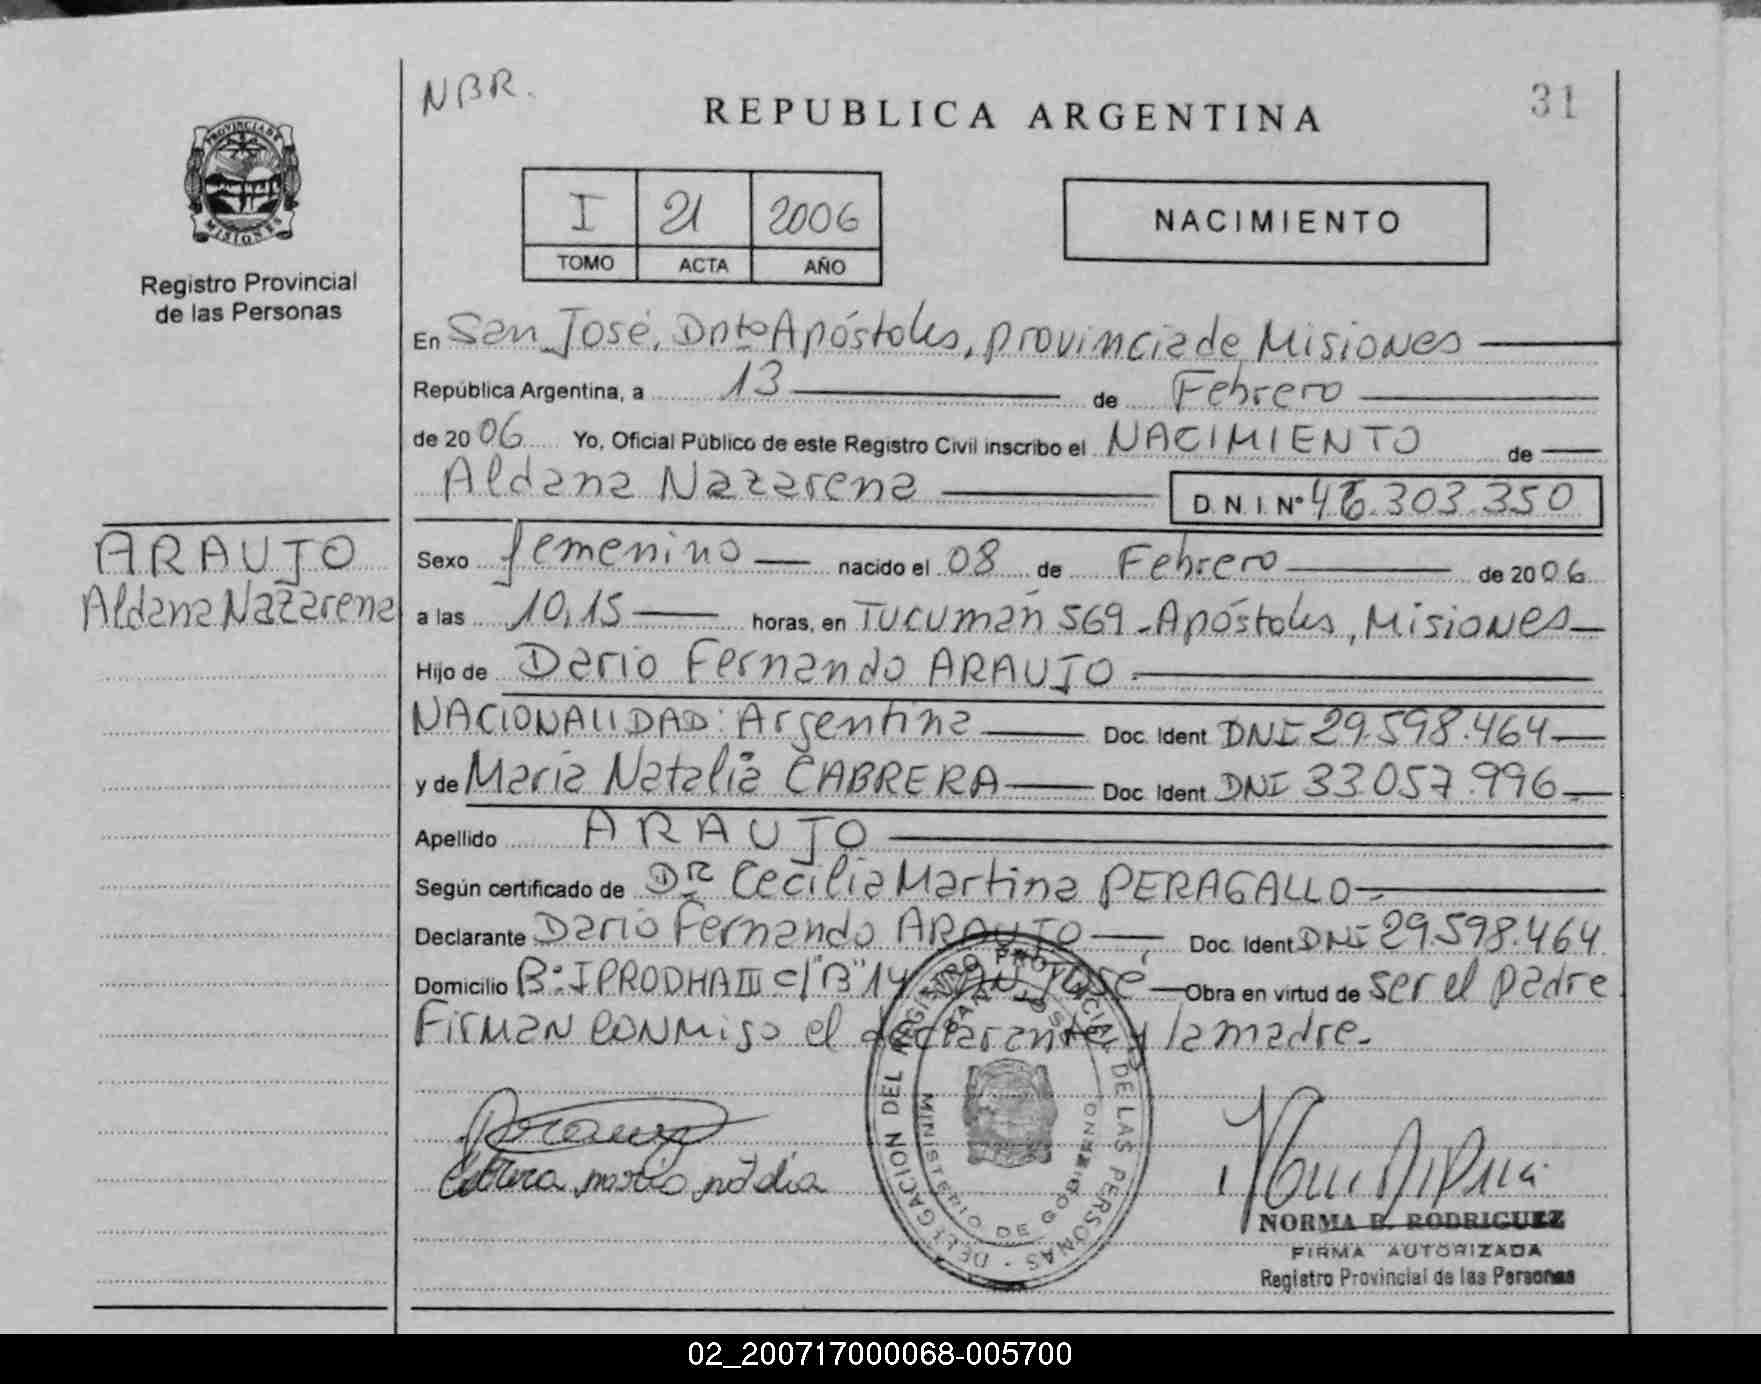 NBR.
REPUBLICA ARGENTINA
31
PROVINCIA DE
MISIONES
Registro Provincial
de las Personas
I 21 2006
TOMO ACTA AÑO
NACIMIENTO
En San José, Dpto Apóstoles, provincia de Misiones
República Argentina, a 13 de Febrero
de 2006 Yo, Oficial Público de este Registro Civil inscribo el NACIMIENTO de
Aldana Nazarena D.N.I. Nº 46.303.350
ARAUJO
Aldana Nazarena
Sexo femenino nacido el 08 de Febrero de 2006
a las 10,15 horas, en Tucumán 569 - Apóstoles, Misiones
Hijo de Dario Fernando ARAUJO
NACIONALIDAD: Argentina Doc. Ident. DNI 29.598.464
y de Maria Natalia CABRERA Doc. Ident. DNI 33.057.996
Apellido ARAUJO
Según certificado de Dra Cecilia Martina PERAGALLO
Declarante Dario Fernando ARAUJO Doc. Ident. DNI 29.598.464
Domicilio B: IPRODHA III c/"B" 14 San José Obra en virtud de ser el padre
Firman conmigo el declarante y la madre.
DELEGACION DEL REGISTRO PROVINCIAL DE LAS PERSONAS
SAN JOSE
MINISTERIO DE GOBIERNO
NORMA B. RODRIGUEZ
FIRMA AUTORIZADA
Registro Provincial de las Personas
02_200717000068-005700